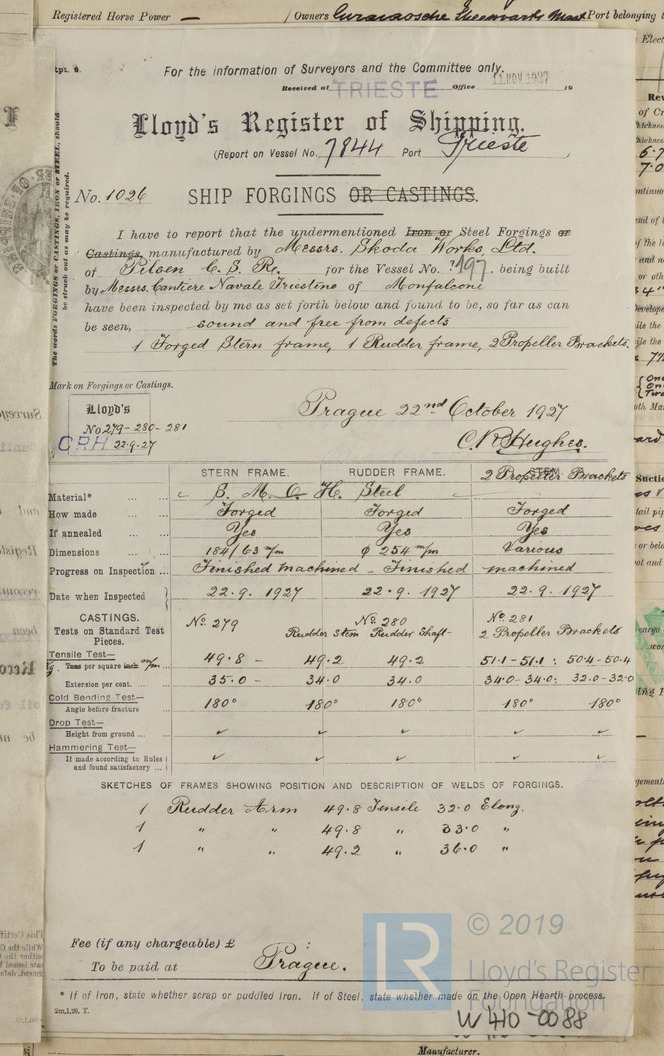 Registered Horse Power — Owners Curacaosche Scheepvaart Maat Port belonging
For the information of Surveyors and the Committee only.
Received at TRIESTE Office 11 NOV 1927 19
Lloyd's Register of Shipping.
(Report on Vessel No. 7844 Port Trieste
The words FORGINGS or CASTINGS, IRON or STEEL, should
be struck out as may be required.
No. 1026 SHIP FORGINGS OR CASTINGS.
I have to report that the undermentioned Iron or Steel Forgings or
Castings, manufactured by Messrs. Skoda Works, Ltd.
of Pilsen C. S. R. for the Vessel No. 197, being built
by Messrs. Cantiere Navale Triestino of Monfalcone
have been inspected by me as set forth below and found to be, so far as can
be seen, sound and free from defects
1 Forged Stern frame, 1 Rudder frame, 2 Propeller Brackets.
Mark on Forgings or Castings.
Lloyd's
No 279-280-281
C.R.H 22-9-27
Prague 22nd October 1927
C. R. Hughes.
STERN FRAME. RUDDER FRAME. 2 Propeller Brackets
Material* S. M. O. H. Steel
How made Forged Forged Forged
If annealed Yes Yes Yes
Dimensions 184/63 m/m φ 254 m/m Various
Progress on Inspection Finished machined - Finished machined
Date when Inspected 22.9.1927 22.9.1927 22.9.1927
CASTINGS.
Tests on Standard Test
Pieces.
No 279 No 280 No 281
Rudder Stem Rudder Shaft- 2 Propeller Brackets
Tensile Test—
Tons per square inch m/m 49.8 - 49.2 49.2 51.1-51.1: 50.4-50.4
Extension per cent. 35.0 - 34.0 34.0 34.0-34.0: 32.0-32.0
Cold Bending Test—
Angle before fracture 180° 180° 180° 180° 180°
Drop Test—
Height from ground ✓ ✓ ✓ ✓ ✓
Hammering Test—
If made according to Rules
and found satisfactory ✓ ✓ ✓ ✓ ✓
SKETCHES OF FRAMES SHOWING POSITION AND DESCRIPTION OF WELDS OF FORGINGS.
1 Rudder Arm 49.8 Tensile 32.0 Elong.
1 " " 49.8 " 33.0 "
1 " " 49.2 " 36.0 "
Fee (if any chargeable) £
To be paid at Prague.
* If of Iron, state whether scrap or puddled Iron. If of Steel, state whether made on the Open Hearth process.
2m,1,26. T.
LR © 2019
Lloyd's Register
Foundation
W410-0088
Manufacturer.